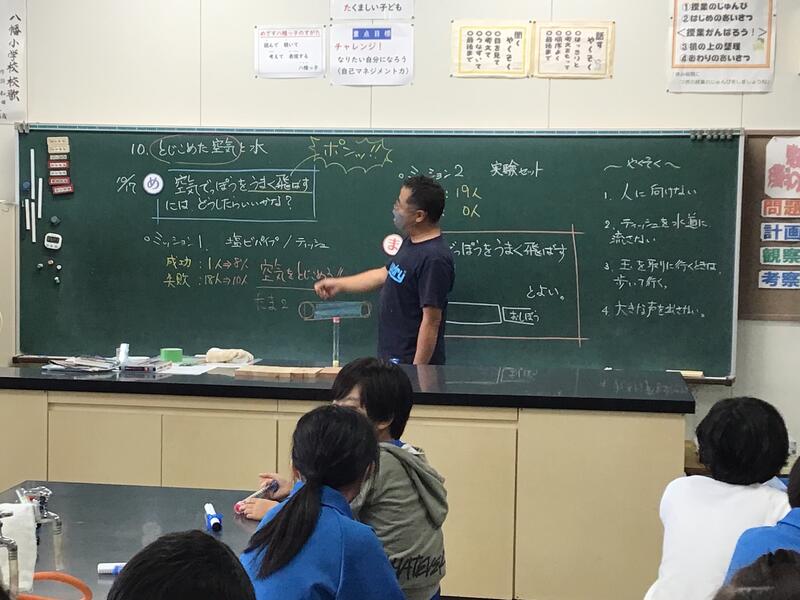 八幡小学校校歌
たくましい子ども
めざす八幡っ子のすがた
読んで 聴いて
考えて 表現する
八幡っ子
重点目標
チャレンジ!
なりたい自分になろう
(自己マネジメント力)
聞く
やくそく
○目を見て
○考えて
○つなげて
○最後まで
話す
やくそく
○はっきりと
○順序よく
○最後まで
①授業のじゅんび
②はじめのあいさつ
<授業がんばろう!>
③机の上の整理
④おわりのあいさつ
10. とじこめた空気と水
ポンッ!!
10/7
め
空気でっぽうをうまく飛ばす
には、どうしたらいいかな?
○ミッション1. 塩ビパイプ/ティッシュ
成功:1人⇒8人
失敗:18人⇒10人
空気をとじこめる!!
たま2
○ミッション2
実験セット
:19人
0人
ま
でっぽうをうまく飛ばす
とよい。
おしぼう
~ やくそく ~
1. 人に向けない
2. ティッシュを水道に
流さない
3. 玉を取りに行くときは、
歩いて行く。
4. 大きな声を出さない。
問題
計画
観察
考察